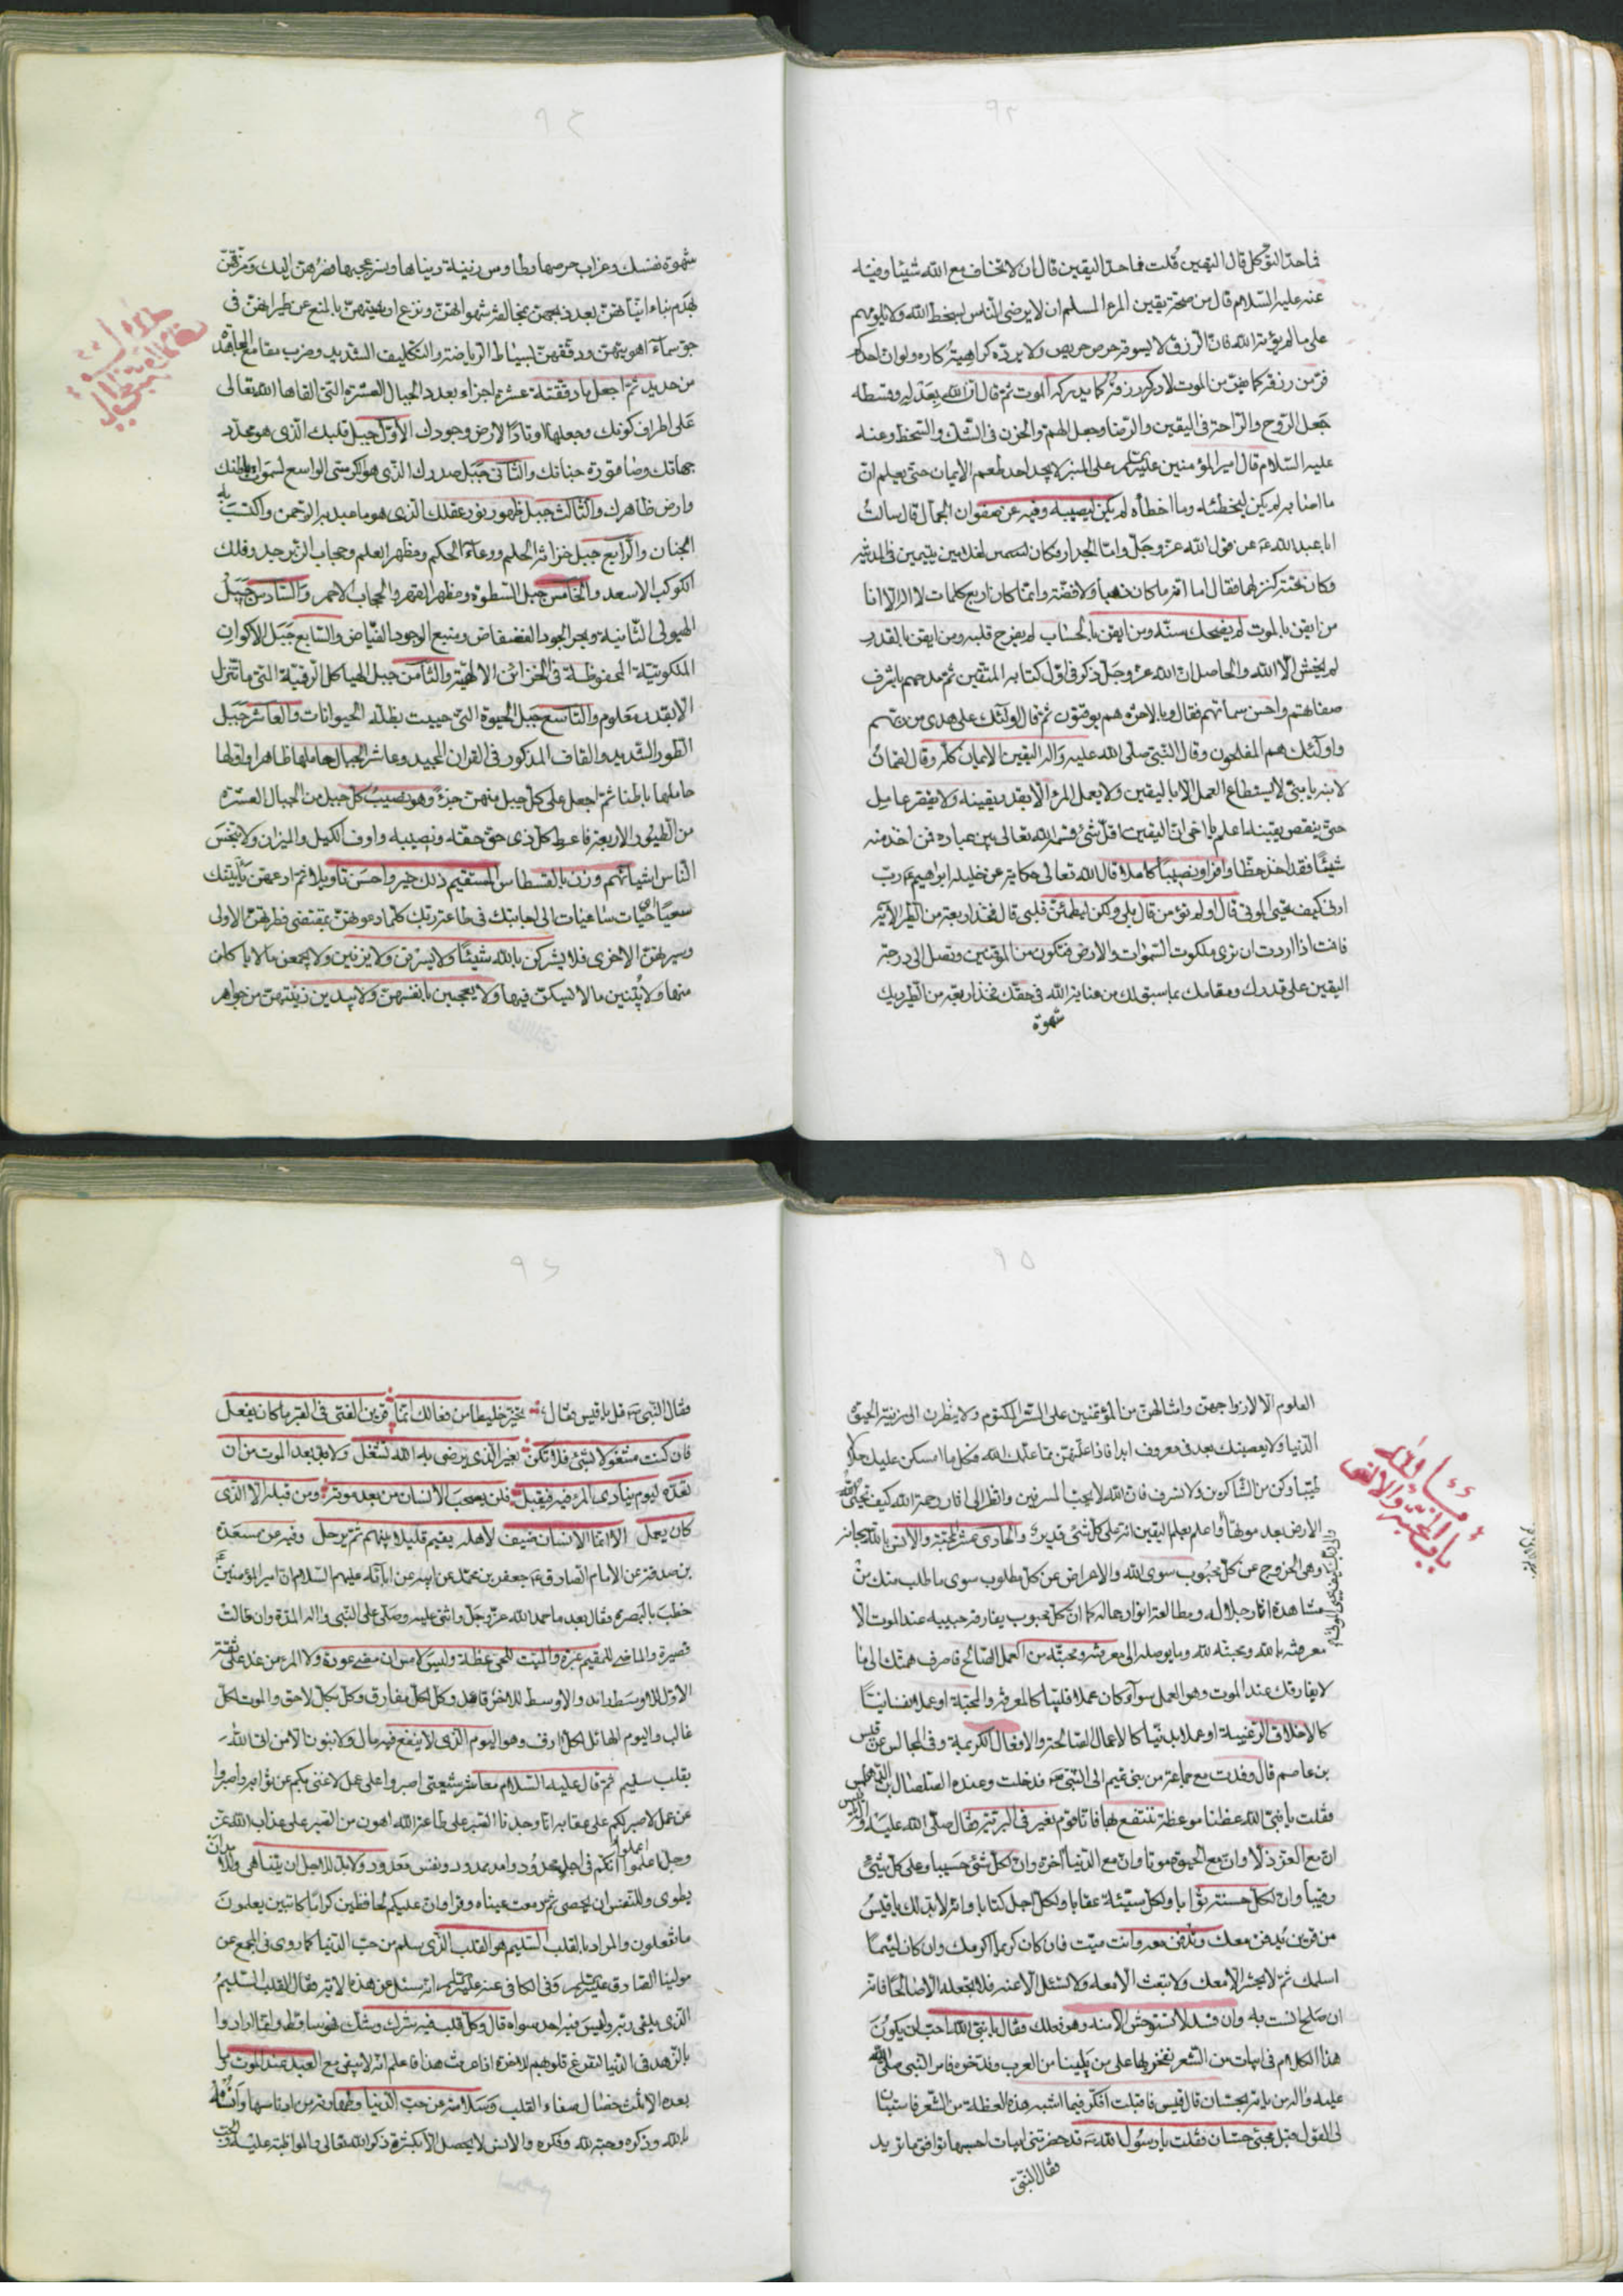 ٩٢
فما حدّ التوكل قال اليقين قلت فما حد اليقين قال ان لا تخاف مع الله شيئا وفيه
عنه عليه السّلام قال من صحة يقين المرء المسلم ان لا يرضى الناس بسخط الله ولا يلومهم
على ما لم يؤته الله فانّ الرزق لا يسوقه حرص حريص ولا يردّه كراهية كاره ولو ان احدكم
فرّ من رزقه كما يفرّ من الموت لادركه رزقه كما يدركه الموت ثم قال انّ الله بعدله وقسطه
جعل الرّوح والرّاحة فى اليقين والرّضا وجعل الهمّ والحزن فى الشك والسّخط وعنه
عليه السّلام قال امير المؤمنين على المنبر لا يجد احد طعم الايمان حتى يعلم انّ
ما اصابه لم يكن ليخطئه وما اخطأه لم يكن ليصيبه وفيه عن صفوان الجمال قال سالت
ابا عبد الله عن قول الله عزّ وجلّ وامّا الجدار فكان لغلامين يتيمين فى المدينة
وكان تحته كنز لهما فقال اما انّه ما كان ذهبا ولا فضّة وانّما كان اربع كلمات لا اله الا انا
من ايقن بالموت لم يضحك سنّه ومن ايقن بالحساب لم يفرح قلبه ومن ايقن بالقدر
لم يخش الّا الله والحاصل ان الله عزّ وجلّ ذكر فى اوّل كتابه المتّقين ثم مدحهم باشرف
صفاتهم واحسن سماتهم فقال وبالاخرة هم يوقنون ثم قال اولئك على هدى من ربّهم
واولئك هم المفلحون وقال النّبى صلّى الله عليه واله اليقين الايمان كلّه وقال لقمان
لابنه يا بنىّ لا يستطاع العمل الّا باليقين ولا يعمل المرء الّا بقدر يقينه ولا يقصر عامل
حتى ينقص يقينه اعلم يا اخى انّ اليقين اقلّ شئ قسّمه الله تعالى بين عباده فمن اخذ منه
شيئا فقد اخذ حظّا وافرا ونصيبا كاملا قال الله تعالى حكاية عن خليله ابراهيم ربّ
ارنى كيف تحيى الموتى قال اولم تؤمن قال بلى ولكن ليطمئنّ قلبى قال فخذ اربعة من الطّير الآية
فانت اذا اردت ان ترى ملكوت السّموات والارض فتكون من الموقنين وتصل الى درجة
اليقين على قدرك ومقامك بما سبق لك من عناية الله فى حقّك فخذ اربعة من الطّير ديك
شهوة
٩٣
شهوة نفسك وغراب حرصها وطاوس زينة دنياها ونسر عجبها فصرهنّ اليك ومزّقهنّ
بهدم بناء بعد ذبحهنّ بمخالفة شهواتهنّ ونزع بالمنع عن طيرانهنّ فى
جوّ سماء اهويتهنّ ودقّقهنّ بسياط الرياضة والتكليف الشديد وضرب مقامع
من حديد ثمّ اجعل عشرة اجزاء بعدد الجبال العشرة التى القاها الله تعالى
على اطراف كونك وجعلها اوتادا لارض وجودك الاوّل جبل قلبك الّذى هو محدّد
جهاتك والثّانى جبل صدرك الذى هو الكرسى الواسع لسموات باطنك
وارض ظاهرك والثّالث جبل ظهور نور عقلك الذى هو ما عبد به الرّحمن واكتسب به
الجنان والرّابع جبل خزانة الحلم ووعاء الحكم ومظهر العلم وحجاب الزّبرجد وفلك
الكوكب الاسعد والخامس جبل السّطوة ومظهر القهر والحجاب الاحمر والسّادس جبل
الهيولى الثّانية وبحر الجود الفضفاض ومنبع الوجود الفيّاض والسّابع جبل الاكوان
الملكوتيّة المحفوظة فى الخزائن الالهيّة والثّامن جبل الهياكل الرقيّة التى ما تنزل
الّا بقدر معلوم والتّاسع جبل الحيوة التى حييت بظلّه الحيوانات والعاشر جبل
الطّور الشّديد والقاف المذكور فى القران المجيد وعاشر الجبال حاملها ظاهرا واوّلها
حاملها باطنا ثمّ اجعل على كلّ جبل منهنّ جزءا وهو نصيب كلّ جبل من الجبال العشرة
من الطّيور الاربعة فاعط كلّ ذى حقّ حقّه ونصيبه واوف الكيل والميزان ولا تبخس
النّاس اشيائهم وزن بالقسطاس المستقيم ذلك خير واحسن تاويلا ثمّ ادعهنّ ياتينك
سعيا حيّات ساعيات الى اجابتك فى طاعة ربّك كلّما دعوتهنّ بمقتضى فطرتهنّ الاولى
وسيرتهنّ الاخرى فلا يشركن بالله شيئا ولا يسرقن ولا يزنين ولا يجمعن ما لا ياكلن
منها ولا يبنين ما لا يسكنّ فيها ولا يعجبن بانفسهنّ ولا يبدين زينتهنّ من جواهر
٩٥
العلوم الّا لازواجهنّ وامثالهنّ من المؤتمنين على السّرّ المكتوم ولا ينظرن الى زينة الحيوة
الدّنيا ولا يعصينك بعد فى معروف ابدا فاذا علّمتهنّ ممّا علّمك الله فكل ممّا امسكن عليك حلالا
طيّبا وكن من الشّاكرين ولا تسرف فانّ الله لا يحبّ المسرفين وانظر الى اثار رحمة الله كيف يحيى الله
الارض بعد موتها واعلم بعلم اليقين انّه على كلّ شئ قدير والحادى عشر المحبّة والانس بالله سبحانه
وهى الخروج عن كلّ محبوب سوى الله والاعراض عن كلّ مطلوب سوى ما طلب منك من
مشاهدة اثار جلاله ومطالعة انوار جماله كما ان كلّ محبوب يفارقه حبيبه عند الموت الّا
معرفته بالله ومحبّته لله وما يوصله الى معرفته ومحبّته من العمل الصّالح فاصرف همّتك الى ما
لا يفارقك عند الموت وهو العمل سواء كان عملا قلبيّا كالمعرفة والمحبّة او عملا نفسانيّا
كالاخلاق الرّغيبة او عملا بدنيّا كالاعمال الصّالحة والافعال الكريمة وفى المجالس عن قيس
بن عاصم قال وفدت مع جماعة من بنى تميم الى النّبى فدخلت وعنده الصّلصال بن
فقلت يا نبىّ الله عظنا موعظة ننتفع بها فانّا قوم نعبر فى البرّيّة فقال صلّى الله عليه واله
انّ مع العزّ ذلّا وانّ مع الحيوة موتا وانّ مع الدّنيا اخرة وانّ لكلّ شئ حسيبا وعلى كلّ شئ
رقيبا وانّ لكلّ حسنة ثوابا ولكلّ سيّئة عقابا ولكلّ اجل كتابا وانّه لا بدّ لك يا قيس
من قرين يدفن معك وتدفن معه وانت ميّت فان كان كريما اكرمك وان كان لئيما
اسلمك ثمّ لا يحشر الّا معك ولا تبعث الّا معه ولا تسئل الّا عنه فلا تجعله الّا صالحا فانّه
ان صلح انست به وان فسد لا تستوحش الّا منه وهو فعلك فقال يا نبىّ الله احبّ ان يكون
هذا الكلام فى ابيات من الشّعر نفخر بها على من يلينا من العرب وندّخره فامر النّبى صلّى الله
عليه واله من ياتيه بحسّان قال قيس فاقبلت افكّر فيما اشبه هذه العظة من الشّعر فاستبان
لى القول قبل مجئ حسّان فقلت يا رسول الله قد حضرتنى ابيات احسبها توافق ما تريد
فقال النّبىّ
٩٦
فقال النّبى قل يا قيس فقال تخيّر خليطا من فعالك انّما قرين الفتى فى القبر ما كان يفعل
فان كنت مشغولا بشئ فلا تكن بغير الّذى يرضى به الله تشغل ولا بدّ بعد الموت من ان
تعدّه ليوم ينادى المرء فيه فيقبل فلن يصحب الانسان من بعد موته ومن قبله الّا الّذى
كان يعمل الا انّما الانسان ضيف لاهله يقيم قليلا بينهم ثمّ يرحل وفيه عن مسعدة
بن صدقة عن الامام الصّادق جعفر بن محمّد عن ابيه عن ابائه عليهم السّلام انّ امير المؤمنين
خطب بالبصرة فقال بعد ما حمد الله عزّ وجلّ واثنى عليه وصلّى على النّبى واله المدّة وان طالت
قصيرة والماضى للمقيم عبرة والميّت للحىّ عظة وليس لامس ان مضى عودة ولا المرء من غد على ثقة
الاوّل للاوسط رائد والاوسط للاخر قائد وكلّ لكلّ مفارق وكلّ بكلّ لاحق والموت لكلّ
غالب واليوم الهائل لكلّ ازف وهو اليوم الّذى لا ينفع فيه مال ولا بنون الّا من اتى الله
بقلب سليم ثمّ قال عليه السّلام معاشر شيعتى اصبروا على عمل لا غنى بكم عن ثوابه واصبروا
عن عمل لا صبر لكم على عقابه انّا وجدنا الصّبر على طاعة الله اهون من الصّبر على عذاب الله عزّ
وجلّ اعلموا انّكم فى اجل محدود وامل ممدود ونفس معدود ولا بدّ للاجل ان يتناهى وللامل ان
يطوى وللنّفس ان يحصى ثمّ دمعت عيناه وقرا وانّ عليكم لحافظين كراما كاتبين يعلمون
ما تفعلون والمراد بالقلب السّليم هو القلب الّذى سلم من حبّ الدّنيا كما روى فى المجمع عن
مولينا الصّادق وفى الكافى عنه انّه سئل عن هذه الاية فقال القلب السّليم
الّذى يلقى ربّه وليس فيه احد سواه قال وكلّ قلب فيه شرك او شك فهو ساقط وانّما ارادوا
بالزّهد فى الدّنيا لتفرغ قلوبهم للاخرة اذا عرفت هذا فاعلم انّه لا يبقى مع العبد عند الموت وما
بعده الّا ثلث خصال صفاء القلب وسلامته من حبّ الدّنيا وطهارته من ادناسها وانسه
بالله وذكره وحبّه لله وفكره والانس لا يحصل الّا بكثرة ذكر الله تعالى والمواظبة عليه